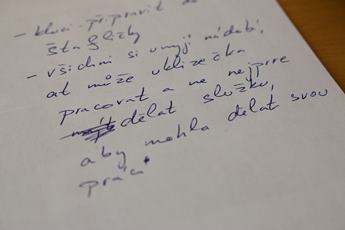 - kluci - připravit do
šatů lízy
- všichni si umyjí nádobí,
ať může uklízečka
pracovat a ne nejprve
dělat služku,
aby mohla dělat svou
práci